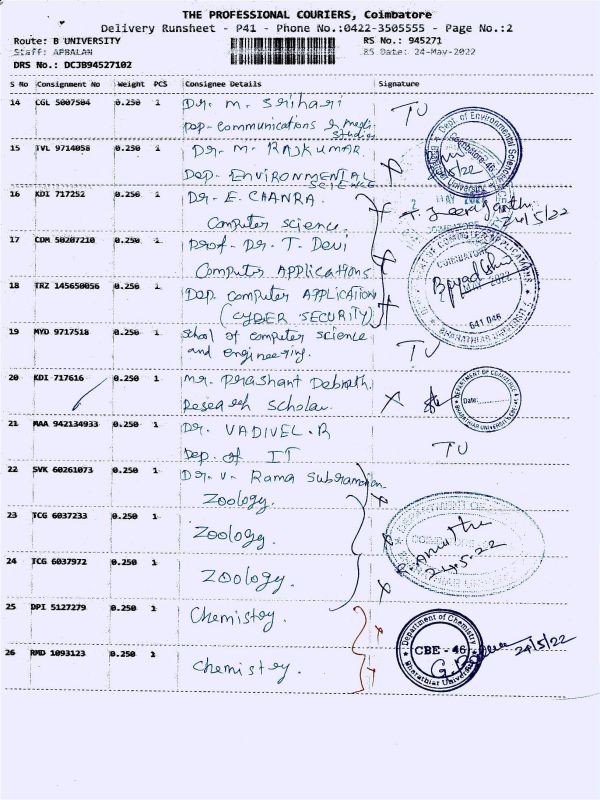 THE PROFESSIONAL COURIERS, Coimbatore
Delivery Runsheet - P41 - Phone No.:0422-3505555 - Page No.:2
Route: B UNIVERSITY
RS No.: 945271
Staff: APBALAN
RS Date: 24-May-2022
DRS No.: DCJB94527102
S No Consignment No Weight PCS Consignee Details Signature
14 CGL 5007504 0.250 1 Dr. M. Srihari TU
Dep- Communications & Medi Studies
15 TVL 9714058 0.250 1 Dr. M. RAJKUMAR
Dep. ENVIRONMENTAL SCIENCE
Dept. of Environmental Sciences
Coimbatore-46
16 KDI 717252 0.250 1 Dr. E. CHANRA
Computer Science.
24/5/22
17 CDM 50207210 0.250 1 Prof. Dr. T. Devi
Computer Applications
18 TRZ 145650056 0.250 1 Dep. Computer APPLICATION
(CYBER SECURITY)
COIMBATORE
641 046
19 MYD 9717518 0.250 1 School of Computer Science
and engineering. TU
20 KDI 717616 0.250 1 Mr. Prashant Debnath.
Research Scholar
DEPARTMENT OF COMMERCE
Date:
21 MAA 942134933 0.250 1 Dr. VADIVEL.R
Dep. of IT TU
22 SVK 60261073 0.250 1 Dr. V. Rama Subramanian
Zoology.
23 TCG 6037233 0.250 1 Zoology.
24-5-22
24 TCG 6037972 0.250 1 Zoology.
25 DPI 5127279 0.250 1 Chemistry.
Department of Chemistry
CBE - 46
Bharathiar University
24/5/22
26 RMD 1093123 0.250 1 Chemistry.